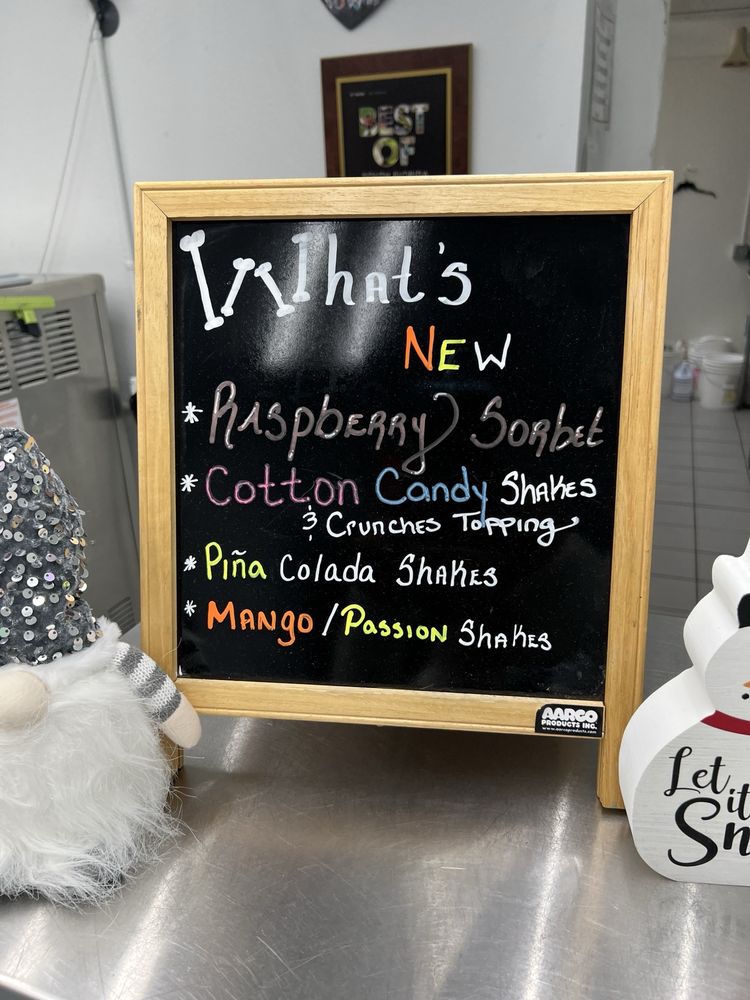 BEST
OF
What's
NEW
* Raspberry Sorbet
* Cotton Candy Shakes
& Crunches Topping
* Piña Colada Shakes
* Mango / Passion Shakes
AARCO
PRODUCTS INC.
www.aarcoproducts.com
Let
it
Sn